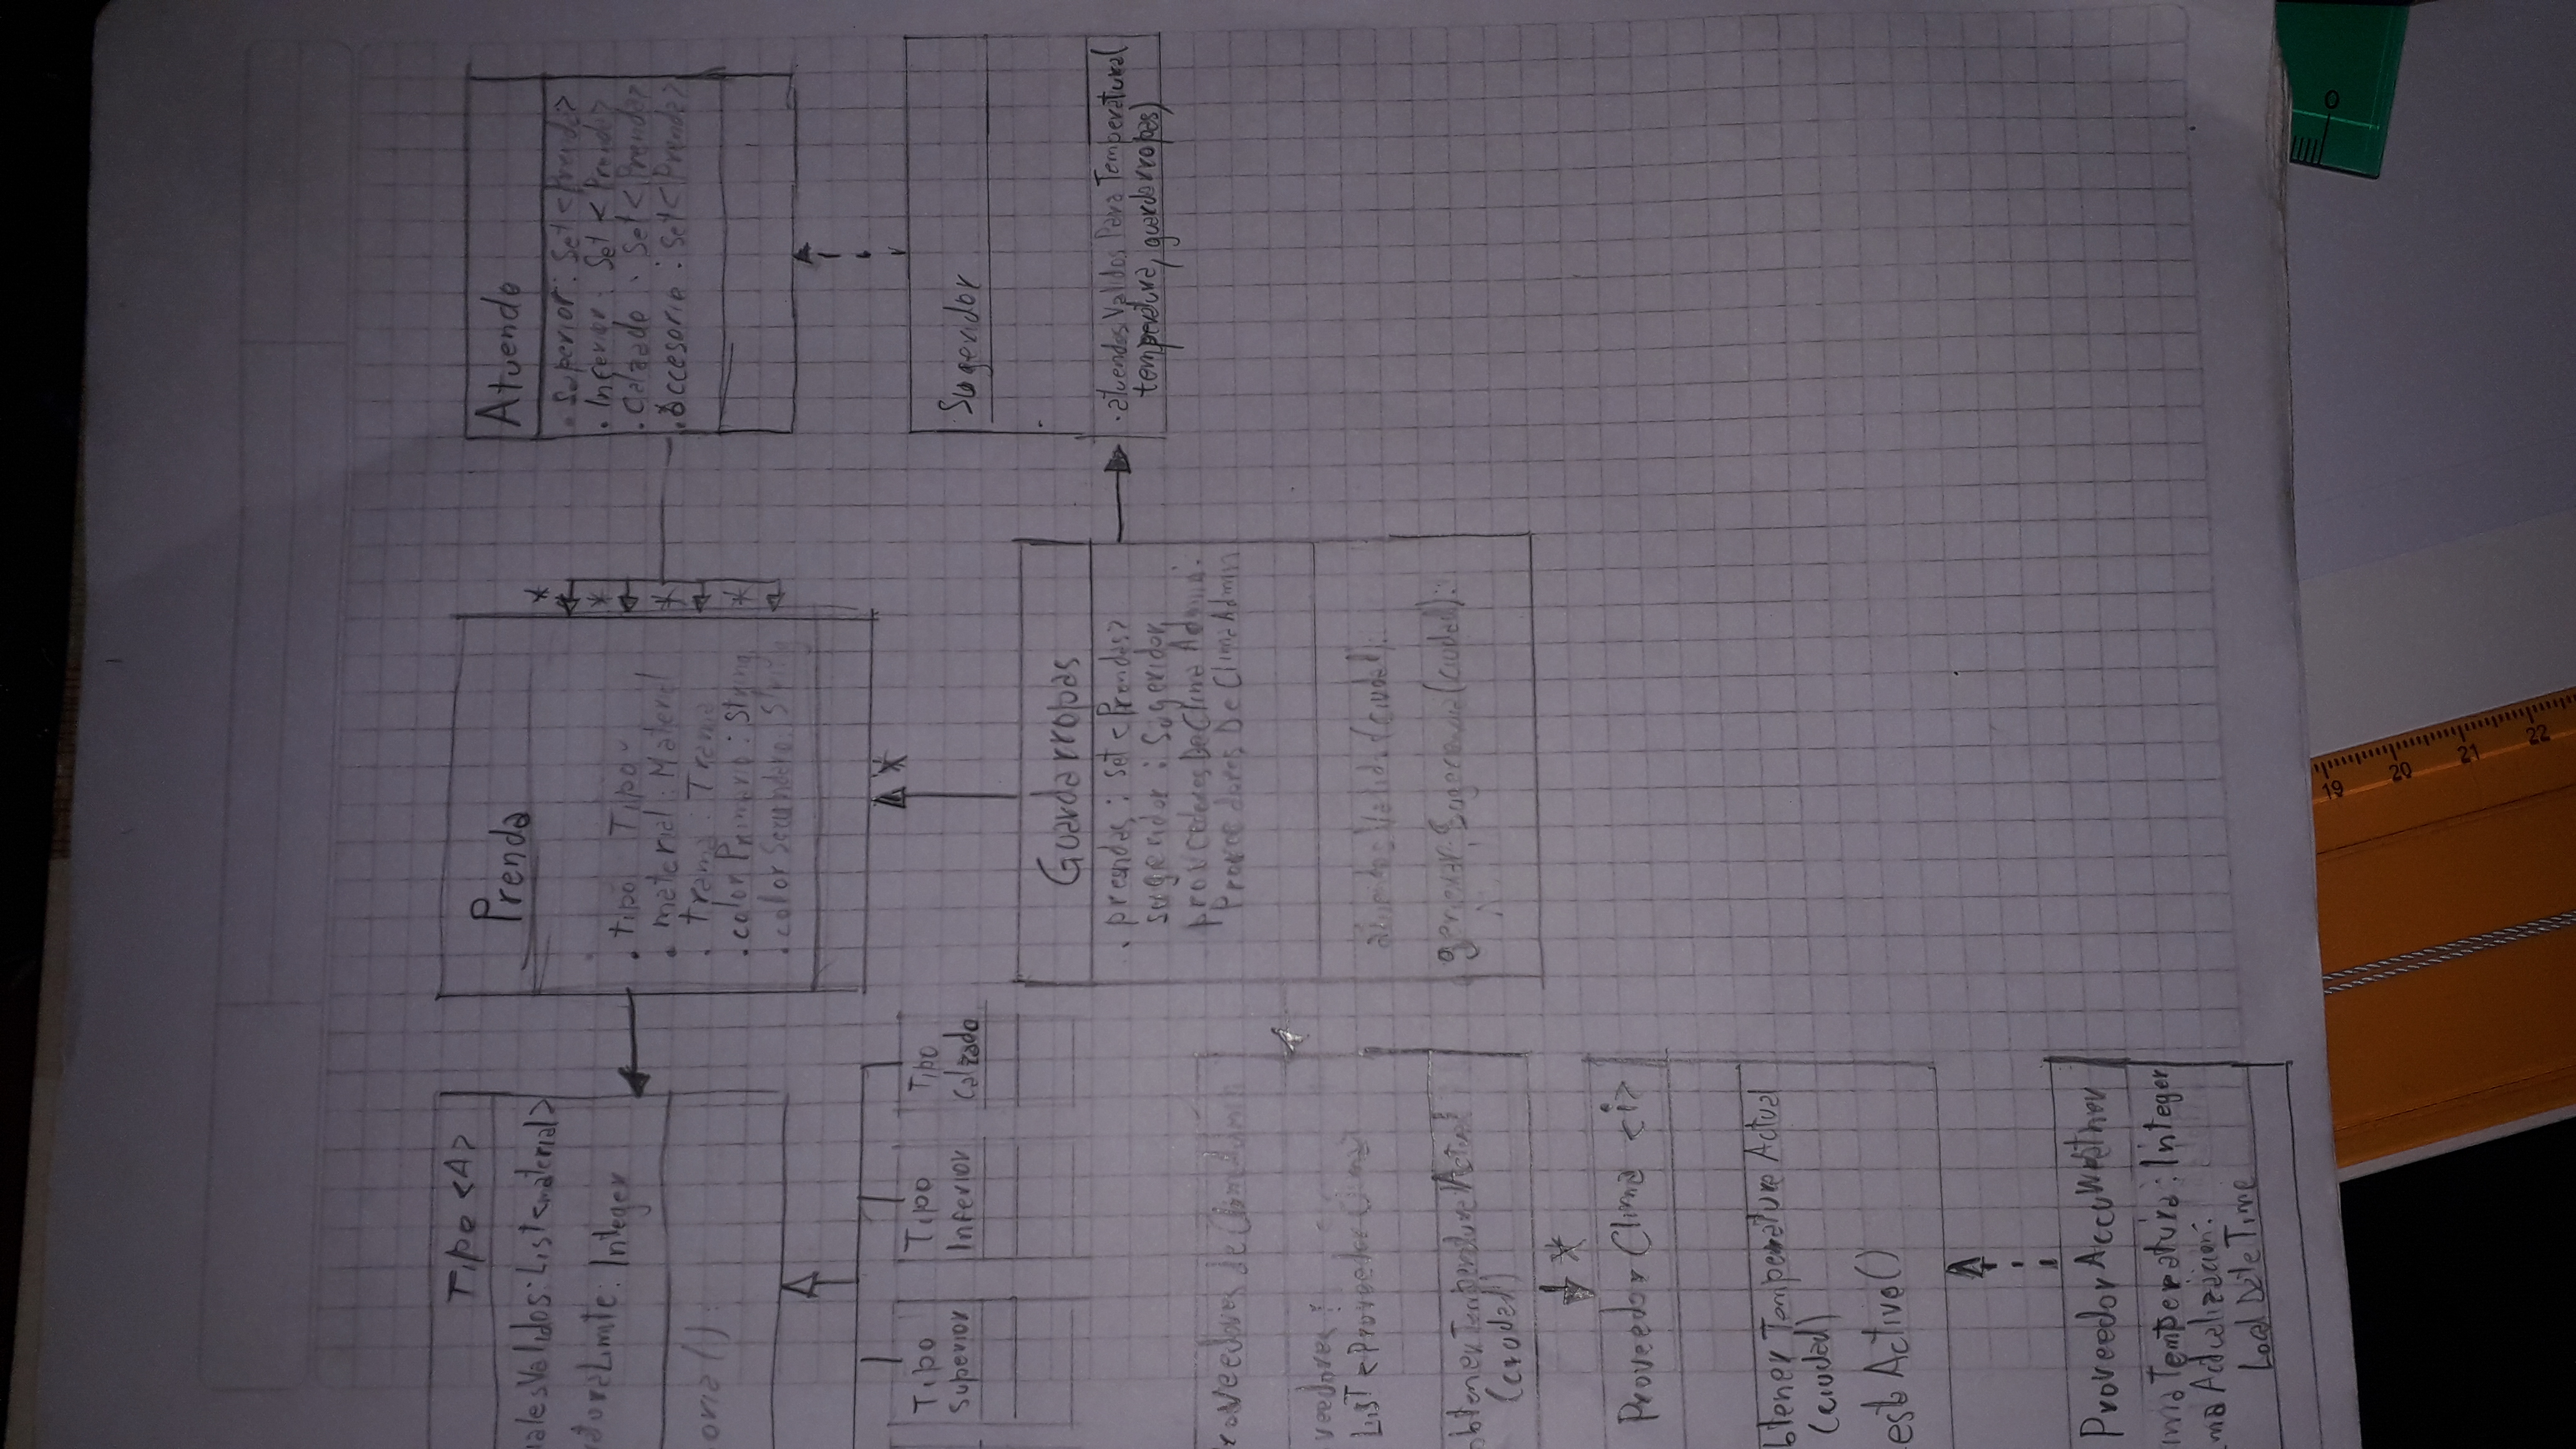 Tipo <A>
ialesValidos: List<material>
Limite: Integer
oria():
Prenda
. tipo Tipo
. material: Material
. trama: Trama
. color Primario: String
. color Secundario: String
* *
*
*
*
Atuendo
. Superior: Set<Prenda>
. Inferior: Set<Prenda>
. Calzado : Set<Prenda>
. accesorio: Set<Prenda>
Tipo
Superior
Tipo
Inferior
Tipo
Calzado
*
Sugeridor
-
. atuendosValidos Para Temperatura(
temperatura, guardarropas)
Guardarropas
. preandas: set<Prendas>
sugeridor: Sugeridor
proveedoresDeClima Admin:
Proveedores De ClimaAdmin
atuendosValido(ciudad):
generar Sugerencia(ciudad):
roveedores de ClimaAdmin
veedores:
List<Proveedor Clima>
obtener Temperatura Actual
(ciudad)
*
Proveedor Clima <i>
btener Temperatura Actual
(ciudad)
esta Activo()
Proveedor AccuWeather
imaTemperatura: Integer
ma Actualizacion:
Local Date Time
19
20
21
22
0